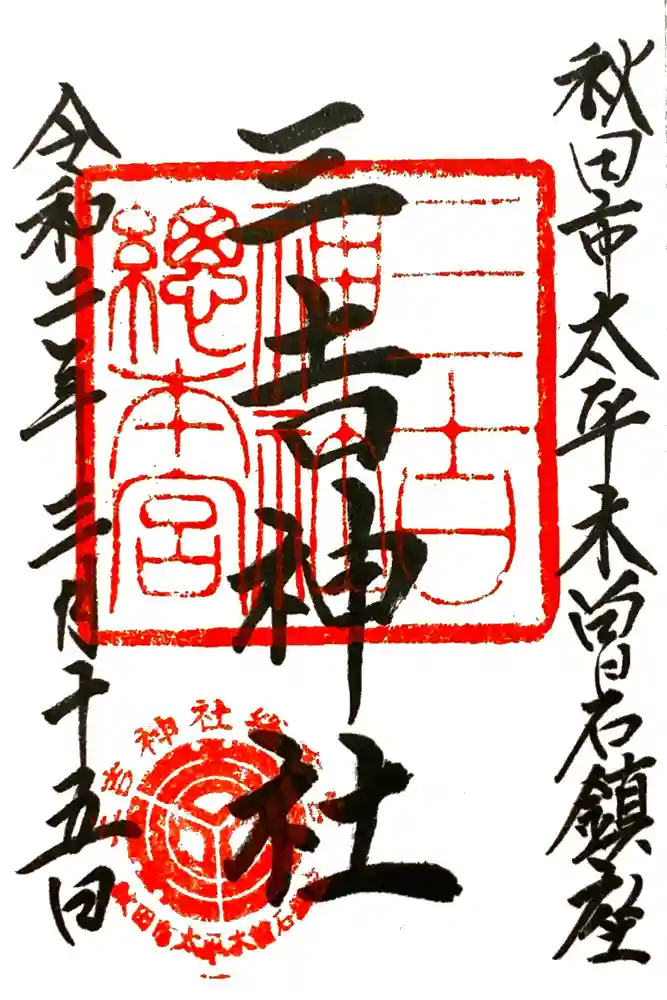 秋田市太平木曽石鎮座
三吉神社
令和二年三月十五日
三吉神社総本宮
三吉神社総
秋田市太平木曽石